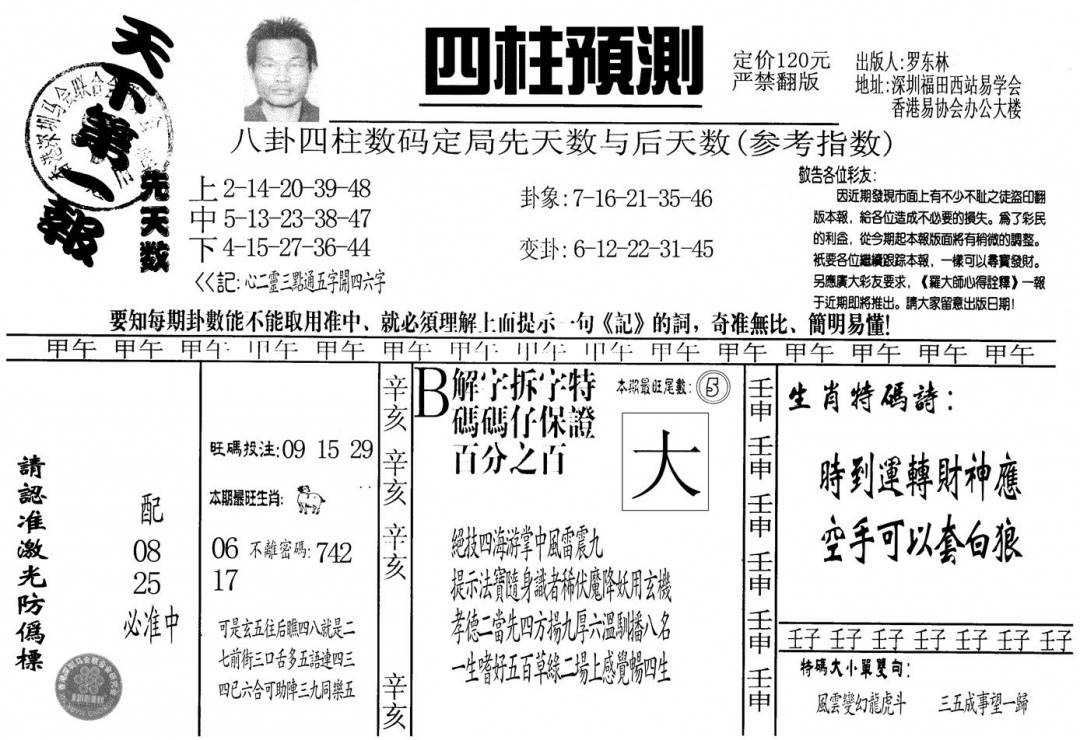 天下第一報
四柱預測
定价120元
严禁翻版
出版人:罗东林
地址:深圳福田西站易学会
香港易协会办公大楼
八卦四柱数码定局先天数与后天数(参考指数)
先天数
上 2-14-20-39-48
中 5-13-23-38-47
下 4-15-27-36-44
<<記:心二靈三點通五字開四六字
卦象:7-16-21-35-46
变卦:6-12-22-31-45
敬告各位彩友:
因近期發現市面上有不少不耻之徒盜印翻
版本報,給各位造成不必要的損失。爲了彩民
的利益,從今期起本報版面將有稍微的調整。
衹要各位繼續跟踪本報,一樣可以尋寶發財。
另應廣大彩友要求,《羅大師心得詮釋》一報
于近期即將推出。請大家留意出版日期!
要知每期卦數能不能取用准中、就必須理解上面提示一句《記》的詞,奇准無比、簡明易懂!
甲午 甲午 甲午 甲午 甲午 甲午 甲午 甲午 甲午 甲午 甲午 甲午 甲午 甲午 甲午
請認准激光防僞標
配
08
25
必准中
旺碼投注:09 15 29
本期最旺生肖:
06 不離密碼:742
17
可是玄五往后瞧四八就是二
七前街三口舌多五語連四三
四已六合可助陣三九同樂五
辛亥 辛亥 辛亥 辛亥
B
解字拆字特
碼碼仔保證
百分之百
本期最旺尾數:5
大
絕技四海游掌中風雷震九
提示法寶隨身識者稀伏魔降妖用玄機
孝德二當先四方揚九厚六溫馴播八名
一生嗜好五百草綠二場上感覺暢四生
壬申 壬申 壬申 壬申 壬申 壬申
生肖特碼詩:
時到運轉財神應
空手可以套白狼
壬子 壬子 壬子 壬子 壬子 壬子 壬子
特碼大小單雙句:
風雲變幻龍虎斗 三五成事望一歸